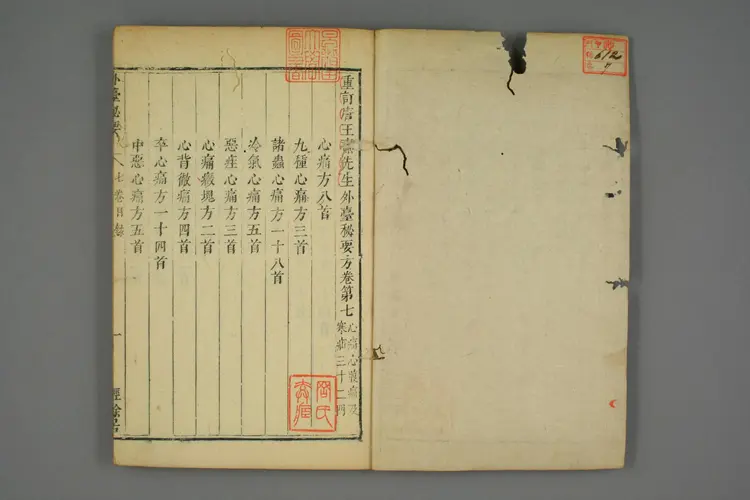 重訂唐王燾先生外臺秘要方卷第七
心痛心腹痛及
寒疝三十二門
心痛方八首
九種心痛方三首
諸蟲心痛方一十八首
冷氣心痛方五首
惡疰心痛方三首
心痛癥塊方二首
心背徹痛方四首
卒心痛方一十四首
中惡心痛方五首
外臺秘要
七卷目錄
一
經餘居
612